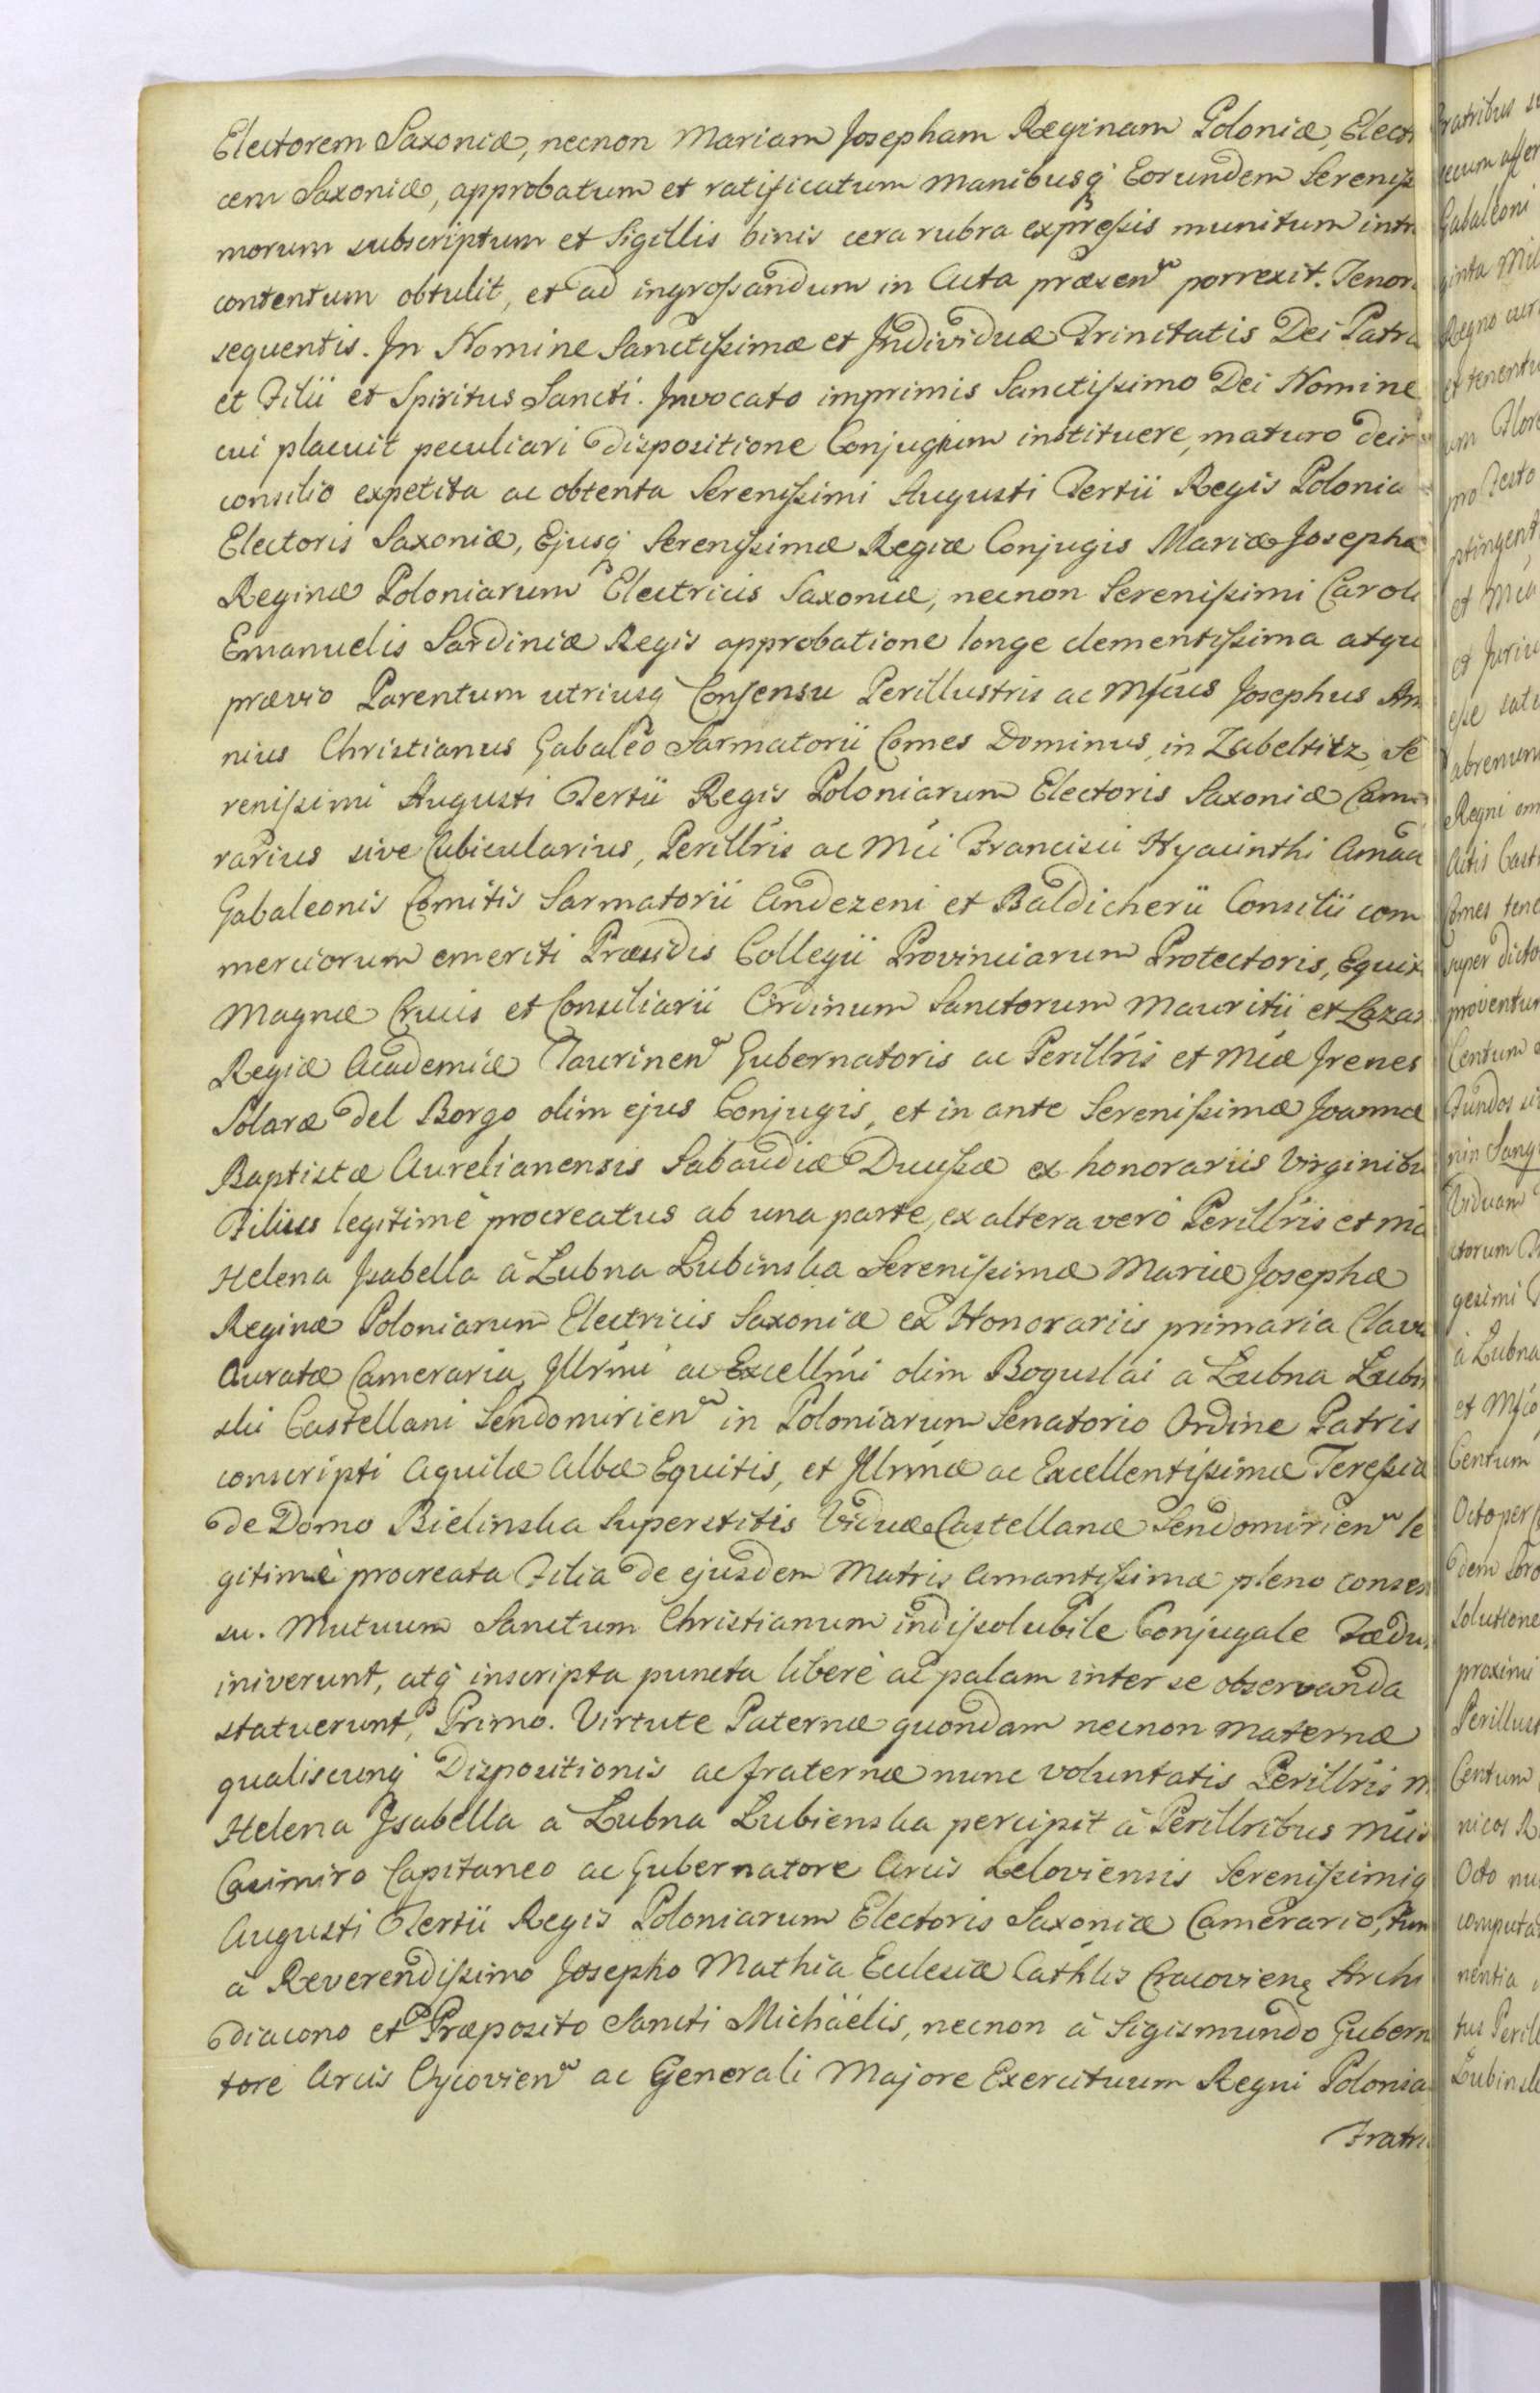 Electorem Saxoniæ, necnon Mariam Josepham Reginam Poloniæ, Elect
cem Saxoniæ, approbatum et ratificatum manibusq́ Eorundem Sereniſs
morum subscriptum et Sigillis binis cera rubra expreſsis munitum intr
contentum obtulit, et ad ingroſsandum in Acta præsen porrexit. Tenor
sequentis. In Nomine Sanctiſsimæ et Individuæ Trinitatis Dei Patri
et Filii et Spiritus Sancti. Invocato imprimis Sanctiſsimo Dei Nomine
cui placuit peculiari dispositione Conjugium instituere, maturo dein
consilio expetita ac obtenta Sereniſsimi Augusti Tertii Regis Polonia
Electoris Saxoniæ, Ejusq́ Sereniſsimæ Regiæ Conjugis Mariæ Josephæ
Reginæ Poloniarum Electricis Saxoniæ, necnon Sereniſsimi Caroli
Emanuelis Sardiniæ Regis approbatione longe clementiſsima atque
prævio Parentum utriusq́ Consensu Perillustris ac Mſcus Josephus An
nius Christianus Gabaleo Sarmatorii Comes Dominus in Zabeltitz, Se
reniſsimi Augusti Tertii Regis Poloniarum Electoris Saxoniæ Came
rarius sive Cubicularius, Perillris ac Mci Francisci Hyacinthi Amad
Gabaleonis Comitis Sarmatorii Andezeni et Baldicherii Consilii com
merciorum emeriti Præsidis Collegii Provinciarum Protectoris, Equit
Magnæ Crucis et Consiliarii Ordinum Sanctorum Mauritii et Lazar
Regiæ Academiæ Taurinen Gubernatoris ac Perillris et Mcæ Irenes
Solaræ del Borgo olim ejus Conjugis, et in ante Sereniſsimæ Joannæ
Baptistæ Aurelianensis Sabaudiæ Duciſsæ ex honorariis Virginibu
Filius legitimè procreatus ab una parte, ex altera verò Perillris et Mca
Helena Isabella à Lubna Lubinska Sereniſsimæ Mariæ Josephæ
Reginæ Poloniarum Electricis Saxoniæ ex Honorariis primaria Clavis
Auratæ Cameraria, Illrmi ac Excellmi olim Boguslai à Lubna Lubin
ski Castellani Sendomirien in Poloniarum Senatorio Ordine Patris
conscripti Aquilæ Albæ Equitis, et Illrmæ ac Excellentiſsimæ Tereſsiæ
de Domo Bielinska Superstitis Viduæ Castellanæ Sendomirien le
gitimè procreata Filia de ejusdem Matris Amantiſsimæ pleno consen
su. Mutuum Sanctum Christianum indiſsolubile Conjugale Fœdu
iniverunt, atq́ inscripta puncta liberè ac palam inter se observanda
statuerunt, Primo. Virtute Paternæ quondam necnon Maternæ
qualiscunq́ Dispositionis ac fraternæ nunc voluntatis Perillris M
Helena Isabella à Lubna Lubienska percipit à Perillribus Mcis
Casimiro Capitaneo ac Gubernatore Arcis Leloviensis Sereniſsimiq
Augusti Tertii Regis Poloniarum Electoris Saxoniæ Camerario, tum
à Reverendiſsimo Josepho Mathia Eclesiæ Cathlis Cracovien Archi
diacono et Præposito Sancti Michäelis, necnon à Sigismundo Gubern
tore Arcis Oycovien ac Generali Majore Exercituum Regni Polonia
Fratri
ratribus
Gabaleoni
Regno
et tenentu
pro Festo
Regni
super dicto
proventu
Centum
Viduam
gesimi
à Lubna
et Mſco
Centum
Octo per
solutione
proximi
Perillust
Centum
nicos
Octo
computa
nentia
tus Perill
Lubinsk